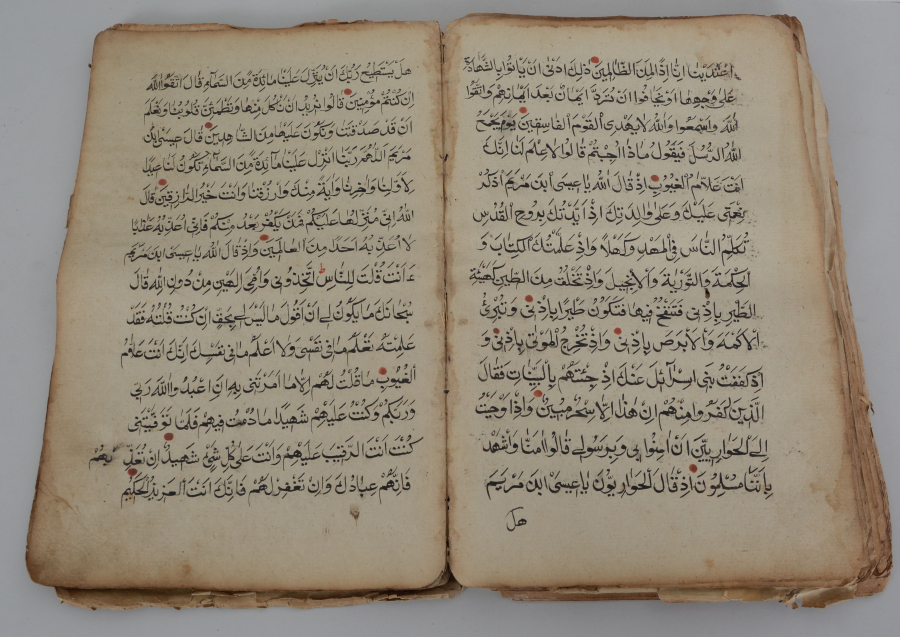 اعْتَدَيْنَا اِنَّا اِذًا لَمِنَ الظَّالِمِينَ ذٰلِكَ اَدْنىٰ اَنْ يَاْتُوا بِالشَّهَادَةِ
عَلىٰ وَجْهِهَا اَوْ يَخَافُوا اَنْ تُرَدَّ اَيْمَانٌ بَعْدَ اَيْمَانِهِمْ وَاتَّقُوا
اللهَ وَاسْمَعُوا وَاللهُ لَا يَهْدِى الْقَوْمَ الْفَاسِقِينَ يَوْمَ يَجْمَعُ
اللهُ الرُّسُلَ فَيَقُولُ مَاذَا اُجِبْتُمْ قَالُوا لَا عِلْمَ لَنَا اِنَّكَ
اَنْتَ عَلَّامُ الْغُيُوبِ اِذْ قَالَ اللهُ يَا عِيسَى ابْنَ مَرْيَمَ اذْكُرْ
نِعْمَتِى عَلَيْكَ وَعَلىٰ وَالِدَتِكَ اِذْ اَيَّدْتُكَ بِرُوحِ الْقُدُسِ
تُكَلِّمُ النَّاسَ فِى الْمَهْدِ وَكَهْلًا وَاِذْ عَلَّمْتُكَ الْكِتَابَ وَ
الْحِكْمَةَ وَالتَّوْرٰيةَ وَالْاِنْجِيلَ وَاِذْ تَخْلُقُ مِنَ الطِّينِ كَهَيْئَةِ
الطَّيْرِ بِاِذْنِى فَتَنْفُخُ فِيهَا فَتَكُونُ طَيْرًا بِاِذْنِى وَتُبْرِئُ
الْاَكْمَهَ وَالْاَبْرَصَ بِاِذْنِى وَاِذْ تُخْرِجُ الْمَوْتىٰ بِاِذْنِى وَ
اِذْ كَفَفْتُ بَنِى اِسْرَائلَ عَنْكَ اِذْ جِئْتَهُمْ بِالْبَيِّنَاتِ فَقَالَ
الَّذِينَ كَفَرُوا مِنْهُمْ اِنْ هٰذَا اِلَّا سِحْرٌ مُبِينٌ وَاِذْ اَوْحَيْتُ
اِلَى الْحَوَارِيِّينَ اَنْ اٰمِنُوا بِى وَبِرَسُولِى قَالُوا اٰمَنَّا وَاشْهَدْ
بِاَنَّنَا مُسْلِمُونَ اِذْ قَالَ الْحَوَارِيُّونَ يَا عِيسَى ابْنَ مَرْيَمَ
هل
هَلْ يَسْتَطِيعُ رَبُّكَ اَنْ يُنَزِّلَ عَلَيْنَا مَائِدَةً مِنَ السَّمَاءِ قَالَ اتَّقُوا اللهَ
اِنْ كُنْتُمْ مُؤْمِنِينَ قَالُوا نُرِيدُ اَنْ نَأْكُلَ مِنْهَا وَتَطْمَئِنَّ قُلُوبُنَا وَنَعْلَمَ
اَنْ قَدْ صَدَقْتَنَا وَنَكُونَ عَلَيْهَا مِنَ الشَّاهِدِينَ قَالَ عِيسَى ابْنُ
مَرْيَمَ اللّٰهُمَّ رَبَّنَا اَنْزِلْ عَلَيْنَا مَائِدَةً مِنَ السَّمَاءِ تَكُونُ لَنَا عِيدًا
لِاَوَّلِنَا وَاٰخِرِنَا وَاٰيَةً مِنْكَ وَارْزُقْنَا وَاَنْتَ خَيْرُ الرَّازِقِينَ قَالَ
اللهُ اِنِّى مُنَزِّلُهَا عَلَيْكُمْ فَمَنْ يَكْفُرْ بَعْدُ مِنْكُمْ فَاِنِّى اُعَذِّبُهُ عَذَابًا
لَا اُعَذِّبُهُ اَحَدًا مِنَ الْعَالَمِينَ وَاِذْ قَالَ اللهُ يَا عِيسَى ابْنَ مَرْيَمَ
ءَاَنْتَ قُلْتَ لِلنَّاسِ اتَّخِذُونِى وَاُمِّىَ اِلٰهَيْنِ مِنْ دُونِ اللهِ قَالَ
سُبْحَانَكَ مَا يَكُونُ لِى اَنْ اَقُولَ مَا لَيْسَ لِى بِحَقٍّ اِنْ كُنْتُ قُلْتُهُ فَقَدْ
عَلِمْتَهُ تَعْلَمُ مَا فِى نَفْسِى وَلَا اَعْلَمُ مَا فِى نَفْسِكَ اِنَّكَ اَنْتَ عَلَّامُ
الْغُيُوبِ مَا قُلْتُ لَهُمْ اِلَّا مَا اَمَرْتَنِى بِهِ اَنِ اعْبُدُوا اللهَ رَبِّى
وَرَبَّكُمْ وَكُنْتُ عَلَيْهِمْ شَهِيدًا مَا دُمْتُ فِيهِمْ فَلَمَّا تَوَفَّيْتَنِى
كُنْتَ اَنْتَ الرَّقِيبَ عَلَيْهِمْ وَاَنْتَ عَلىٰ كُلِّ شَىْءٍ شَهِيدٌ اِنْ تُعَذِّبْهُمْ
فَاِنَّهُمْ عِبَادُكَ وَاِنْ تَغْفِرْ لَهُمْ فَاِنَّكَ اَنْتَ الْعَزِيزُ الْحَكِيمُ